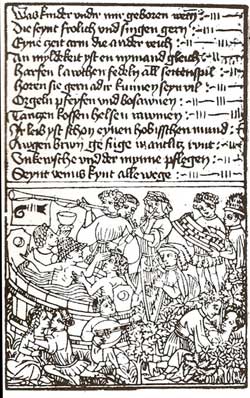 Was kinder vndir mir geboren
Die seynt frolich vnd singen gern
Eyne zeit arm die ander reich
An myldekeit yst en nymand gleich
Harfen lawthen fedeln all seitenspil
Horen sie gern adir kunnen seyn vil
Orgeln pfeyfen vnd bosawnen
Tanczen kossen helsen rawmen
Ir leib yst schon eynen hobisschen mund
Awgen brwn gefuge antlitz runt
Unkewsche vnd der mynne pflegen
Seynt venus kynt alle wege